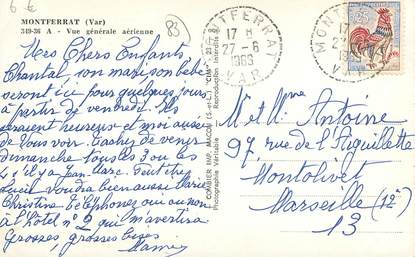 6 €
MONTFERRAT (Var)
349-36 A - Vue générale aérienne
83
Mes Chers Enfants
Chantal, son mari son bébé
seront ici pour quelques jours
à partir de vendredi. Ils
seraient heureux et moi aussi
de vous voir. Tachez de venir
dimanche tous les 3 ou les
4 s'il y a Jean-Marc. Peut être
voudra bien aussi Marie
Christine. Téléphonez oui ou non
à l'hôtel n° 2 qui m'avertira
Grosses, grosses bises
Mamie
COMBIER IMP. MACON (S.-et-L.) "CIM"
Photographie Véritable - Reproduction Interdite
MONTFERRAT
17 H
27-6
1963
VAR
MONTFERRAT
17 H
VAR
M et Mme Antoine
97 rue de l'Aiguillette
Montolivet
Marseille (12e)
13